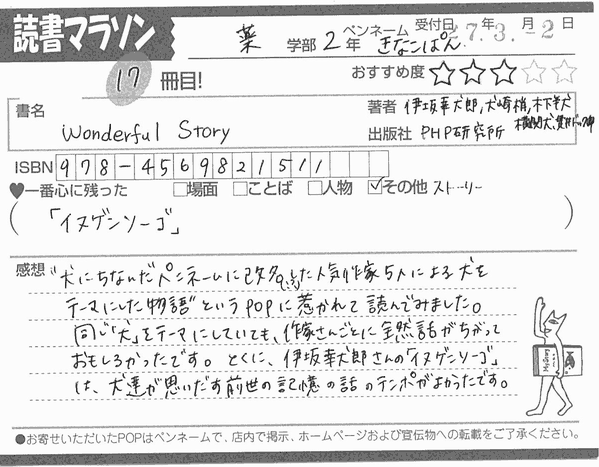 読書マラソン
薬 学部 2 年 ペンネーム きなこぱん 受付日 27年3.月-2日
17 冊目!
おすすめ度 ☆☆☆☆☆
書名
Wonderful Story
著者 伊坂幸犬郎,犬崎梢,木下半犬
横関犬,貫井ドッグ郎
出版社 PHP研究所
ISBN 978-4569821511
♥一番心に残った □場面 □ことば □人物 ☑その他 ストーリー
(「イヌゲンソーゴ」)
感想 "犬にちなんだペンネームに改名した人気作家5人による犬を
テーマにした物語"というPOPに惹かれて読んでみました。
同じ「犬」をテーマにしていても、作家さんごとに全然話がちがって
おもしろかったです。とくに、伊坂幸犬郎さんの「イヌゲンソーゴ」
は、犬達が思いだす前世の記憶の話のテンポがよかったです。
●お寄せいただいたPOPはペンネームで、店内で掲示、ホームページおよび宣伝物への転載をご了承ください。